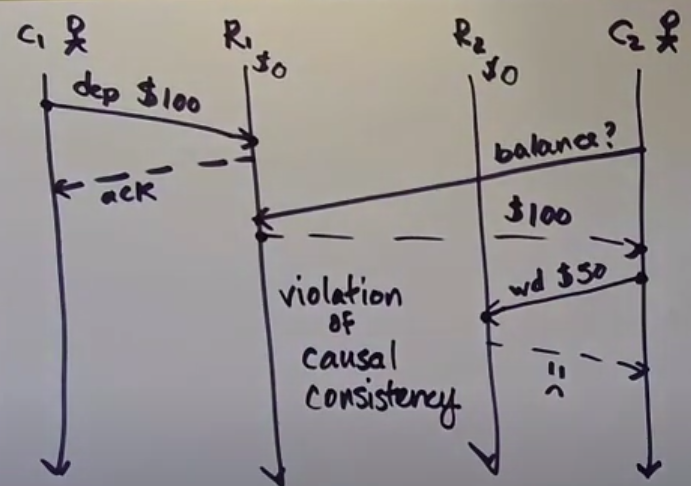 C1 R1 R2 C2
$0 $0
dep $100
balance?
ack
$100
wd $50
violation
of
causal
consistency